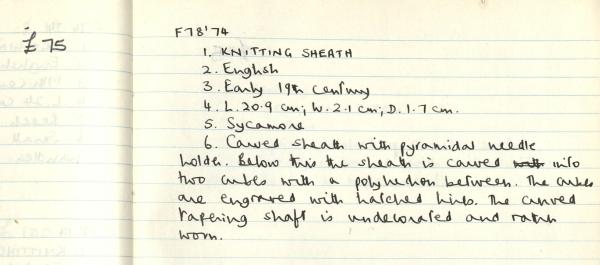 £75
F78'74
1. KNITTING SHEATH
2. English
3. Early 19th century
4. L. 20.9 cm; W. 2.1 cm; D. 1.7 cm.
5. Sycamore
6. Carved sheath with pyramidal needle
holder. Below this the sheath is carved into
two cubes with a polyhedron between. The cubes
are engraved with hatched lines. The curved
tapering shaft is undecorated and rather
worn.